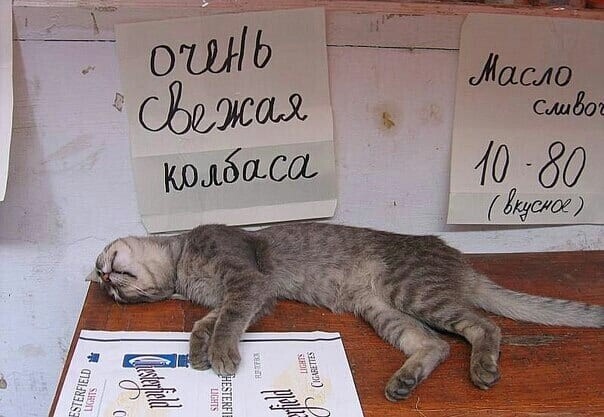 очень
свежая
колбаса
Масло
сливоч
10-80
(вкусное)
CHESTERFIELD
LIGHTS
Chesterfield
CHESTERFIELD
LIGHTS
LIGHTS
CIGARETTES